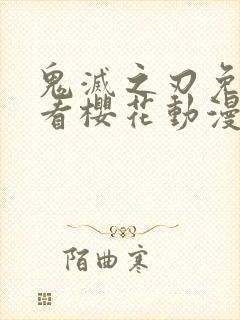 鬼滅之刃免
者櫻花動漫
陌曲寒